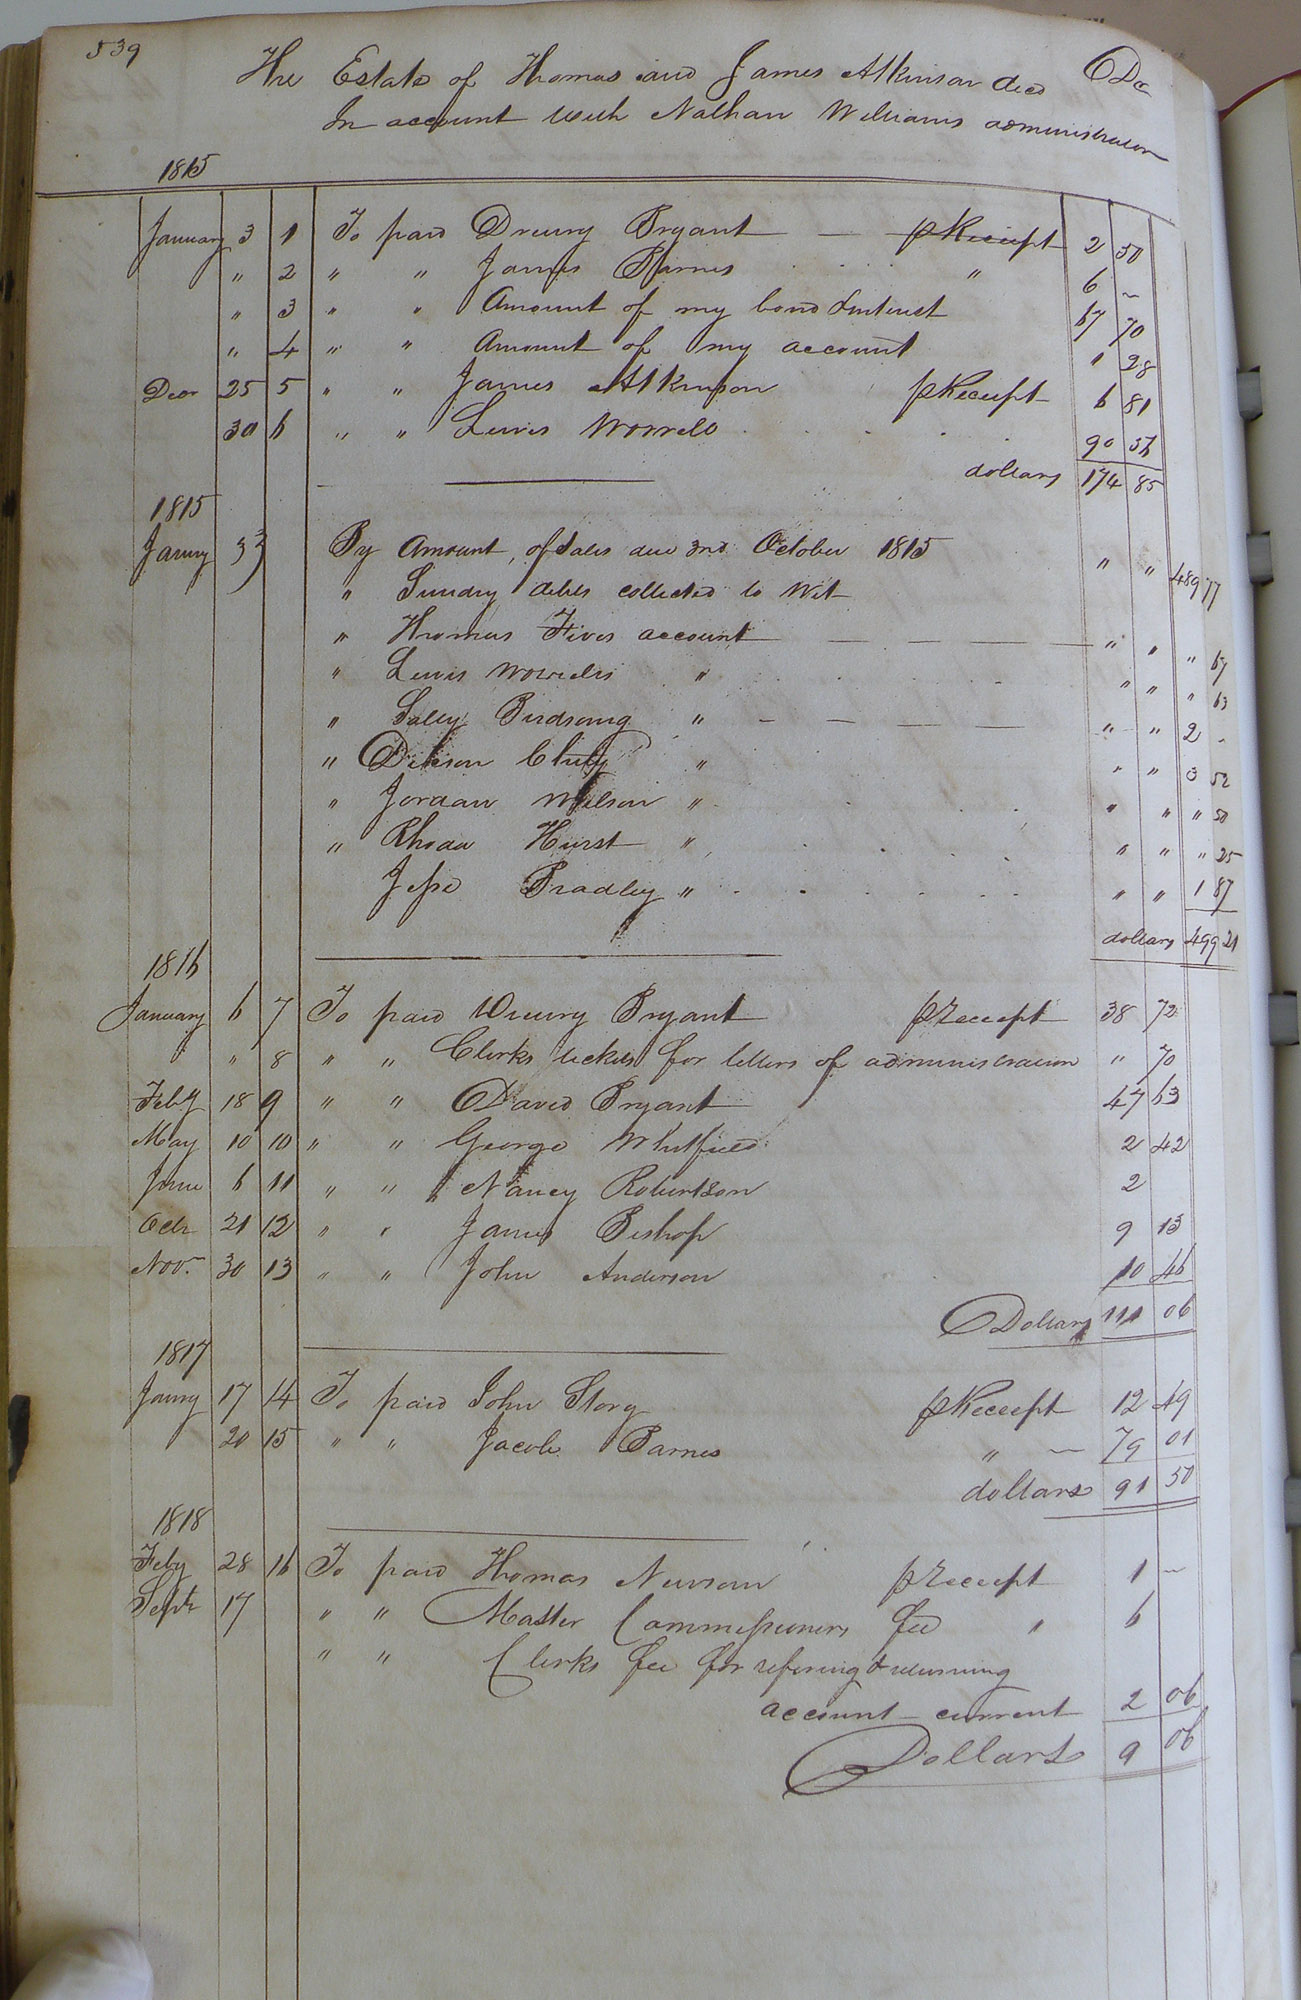 539
The Estate of Thomas and James Atkinson decd Dr
In account with Nathan Williams administrator
1815
January 3 1 To paid Drewry Bryant — — p Receipt 2 50
" 2 " " James Barnes " 6 –
" 3 " " Amount of my bond & intrest 67 70
" 4 " " Amount of my account 1 28
Decr 25 5 " " James Atkinson p Receipt 6 81
30 6 " " Lewis Worrell 90 56
dollars 174 85
1815
Janury 3 By Amount of Sales due 3rd October 1815 " " 489 77
" Sundry debts collected to Wit
" Thomas Fives account — — — — " " " 67
" Lewis Worrells " " " " 63
" Salley Birdsong " — — — — " " 2 -
" Dickson " " " 3 52
" Jordan Wilson " " " " 50
" Rhoda Hurst " " " " 25
Jesse Bradley " " " 1 87
dollars 499 21
1816
January 6 7 To paid Drewry Bryant p Receipt 38 72
" 8 " " Clerks tickets for letters of administration " 70
Feby 18 9 " " David Bryant 47 63
May 10 10 " " George Whitfield 2 42
June 6 11 " " Nancy Robertson 2
Octr 21 12 " " James Bishop 9 13
Nov. 30 13 " " John Anderson 10 46
Dollars 111 06
1817
Janry 17 14 To paid John Story p Receipt 12 49
20 15 " " Jacob Barnes " — 79 01
dollars 91 50
1818
Feby 28 16 To paid Thomas Newsom p Receipt 1 –
Septr 17 " " Master Commissioners fee " 6
" " Clerks fee for refering & returning
account current 2 06
Dollars 9 06